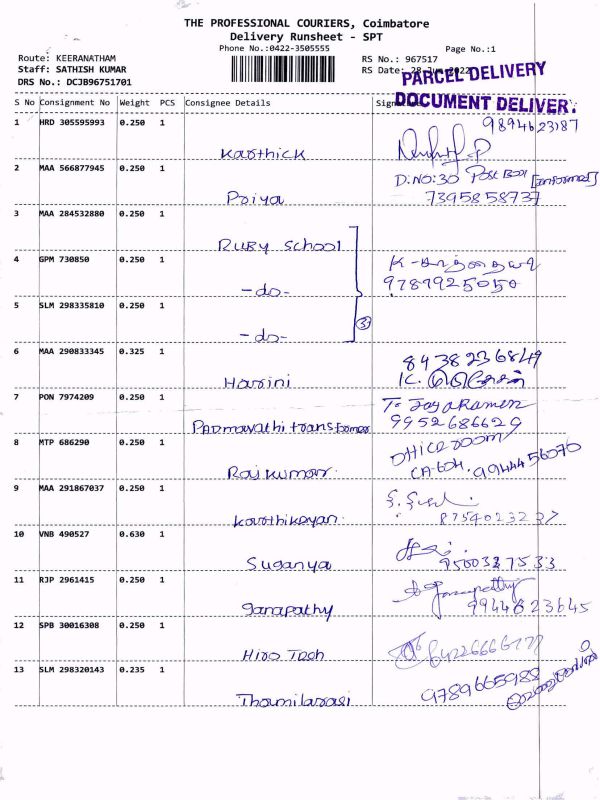 THE PROFESSIONAL COURIERS, Coimbatore
Delivery Runsheet - SPT
Phone No.:0422-3505555
Page No.:1
Route: KEERANATHAM
RS No.: 967517
Staff: SATHISH KUMAR
RS Date: 28-Jun-2022
DRS No.: DCJB96751701
PARCEL DELIVERY
DOCUMENT DELIVERY
S No Consignment No Weight PCS Consignee Details
1 HRD 305595993 0.250 1
Karthick
9894623187
2 MAA 566877945 0.250 1
Priya
D.NO:30 Post Box [informed]
7395858737
3 MAA 284532880 0.250 1
Ruby School
4 GPM 730850 0.250 1
-do-
9787925050
5 SLM 298335810 0.250 1
-do-
3
6 MAA 290833345 0.325 1
Harini
8438236849
7 PON 7974209 0.250 1
Padmavathi transformer
To Jayaraman
9952686629
8 MTP 686290 0.250 1
Rajkumar.
office room
9944456076
9 MAA 291867037 0.250 1
Karthikeyan.
8754023237
10 VNB 490527 0.630 1
Suganya
9500327533
11 RJP 2961415 0.250 1
ganapathy
Ganapathy
9944823645
12 SPB 30016308 0.250 1
Hiro Tech
13 SLM 298320143 0.235 1
Thamilarasi
9789665988